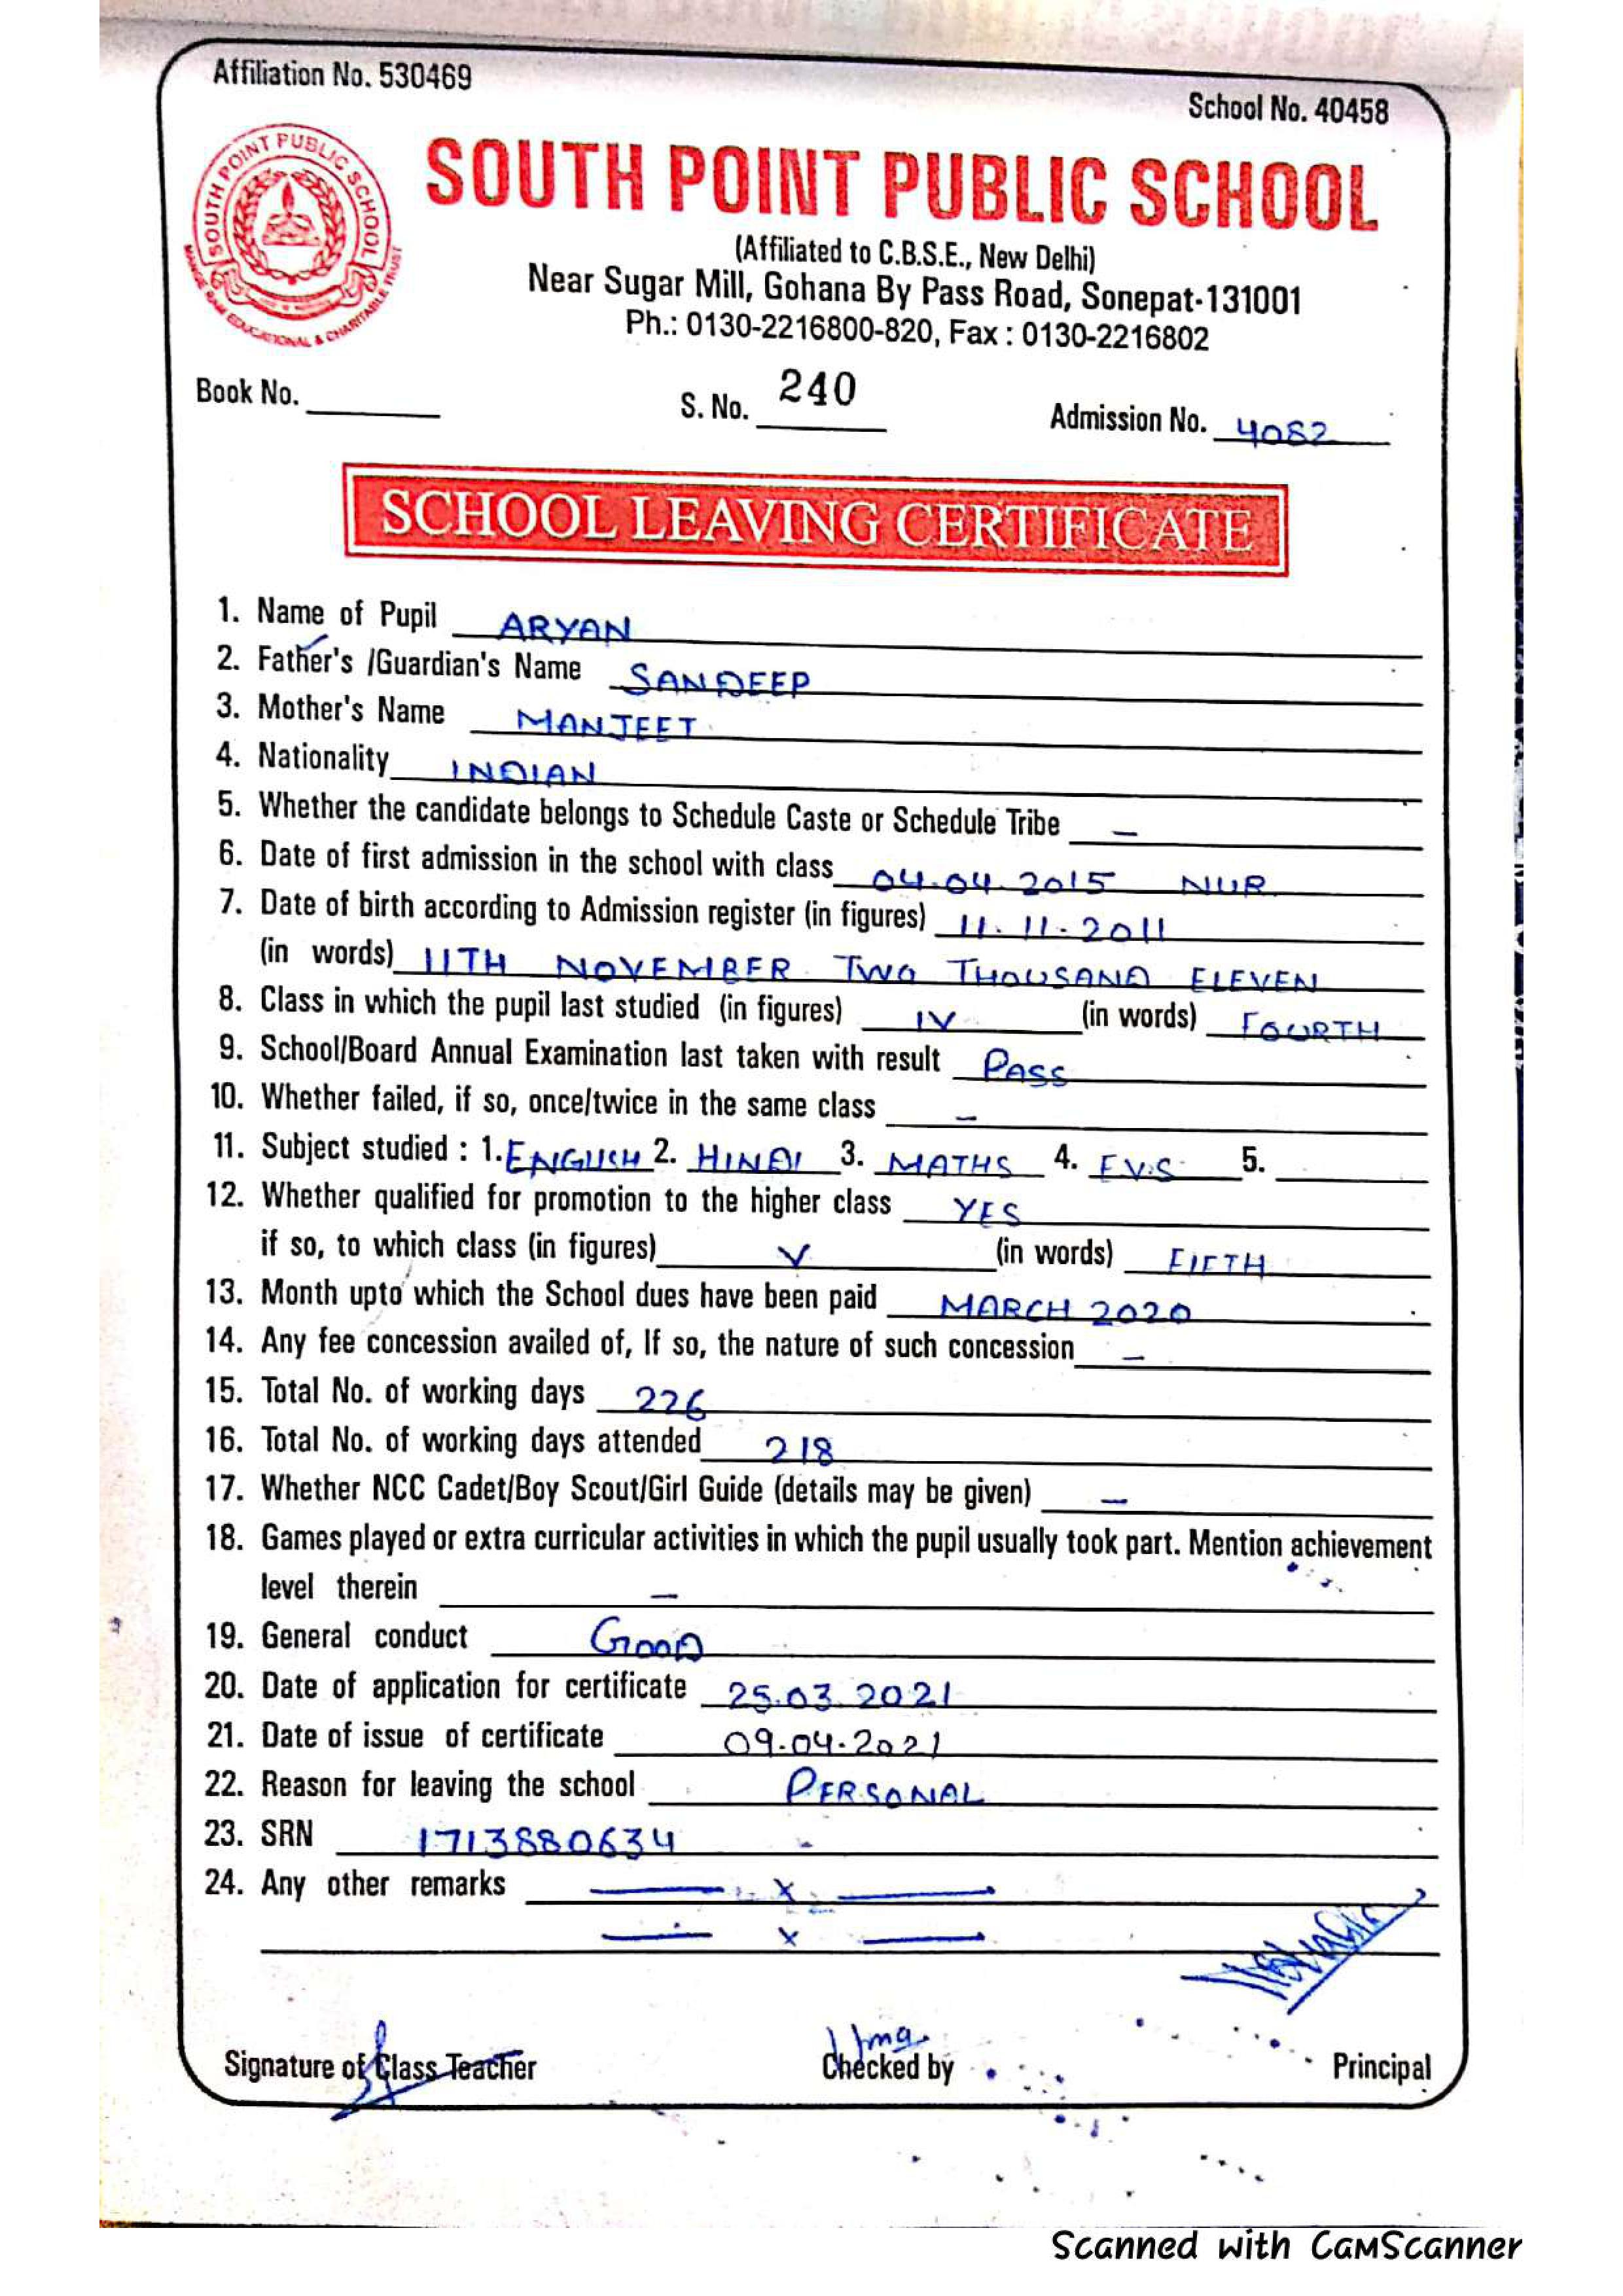 Affiliation No. 530469
School No. 40458
SOUTH POINT PUBLIC SCHOOL
SOUTH POINT PUBLIC SCHOOL
EDUCATIONAL & CHARITABLE TRUST
(Affiliated to C.B.S.E., New Delhi)
Near Sugar Mill, Gohana By Pass Road, Sonepat-131001
Ph.: 0130-2216800-820, Fax : 0130-2216802
Book No. S. No. 240 Admission No. 4082
SCHOOL LEAVING CERTIFICATE
1. Name of Pupil ARYAN
2. Father's /Guardian's Name SANDEEP
3. Mother's Name MANJEET
4. Nationality INDIAN
5. Whether the candidate belongs to Schedule Caste or Schedule Tribe –
6. Date of first admission in the school with class 04.04.2015 NUR
7. Date of birth according to Admission register (in figures) 11.11.2011
(in words) 11TH NOVEMBER TWO THOUSAND ELEVEN
8. Class in which the pupil last studied (in figures) IV (in words) FOURTH
9. School/Board Annual Examination last taken with result PASS
10. Whether failed, if so, once/twice in the same class –
11. Subject studied : 1. ENGLISH 2. HINDI 3. MATHS 4. EVS 5.
12. Whether qualified for promotion to the higher class YES
if so, to which class (in figures) V (in words) FIFTH
13. Month upto which the School dues have been paid MARCH 2020
14. Any fee concession availed of, If so, the nature of such concession –
15. Total No. of working days 226
16. Total No. of working days attended 218
17. Whether NCC Cadet/Boy Scout/Girl Guide (details may be given) –
18. Games played or extra curricular activities in which the pupil usually took part. Mention achievement
level therein –
19. General conduct GOOD
20. Date of application for certificate 25.03.2021
21. Date of issue of certificate 09.04.2021
22. Reason for leaving the school PERSONAL
23. SRN 1713880634
24. Any other remarks — x —
— x —
Uma
Signature of Class Teacher Checked by Principal
Scanned with CamScanner